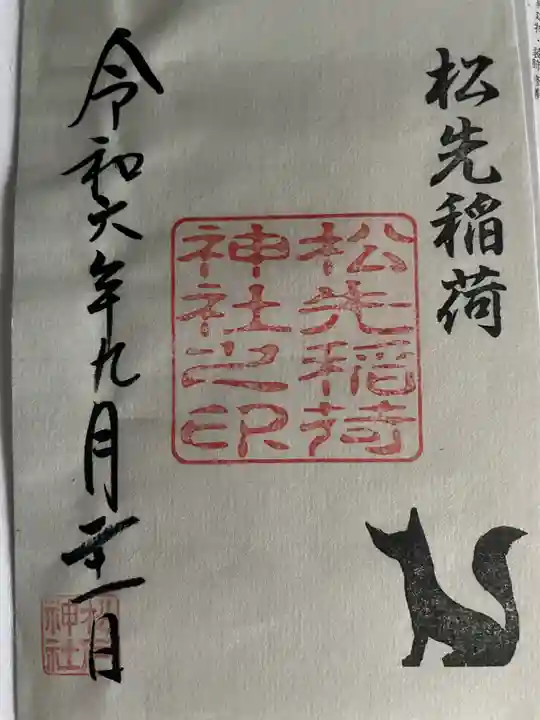 松先稲荷
松先稲荷
神社之印
令和六年九月二十一日
神社